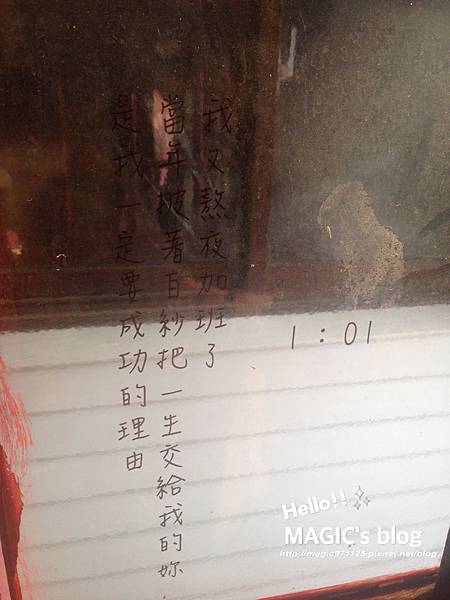 1:01
我又熬夜加班了
當年披著白紗把一生交給我的妳
是我一定要成功的理由
Hello!!
MAGIC's blog
http://magic971125.pixnet.net/blog